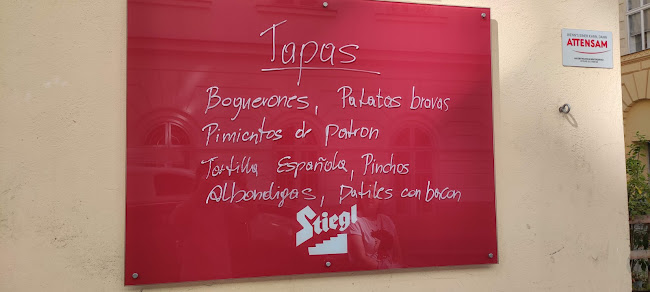 Tapas
Boquerones, Patatas bravas
Pimientos de patron
Tortilla Española, Pinchos
Albondigas, Datiles con bacon
Stiegl
ATTENSAM